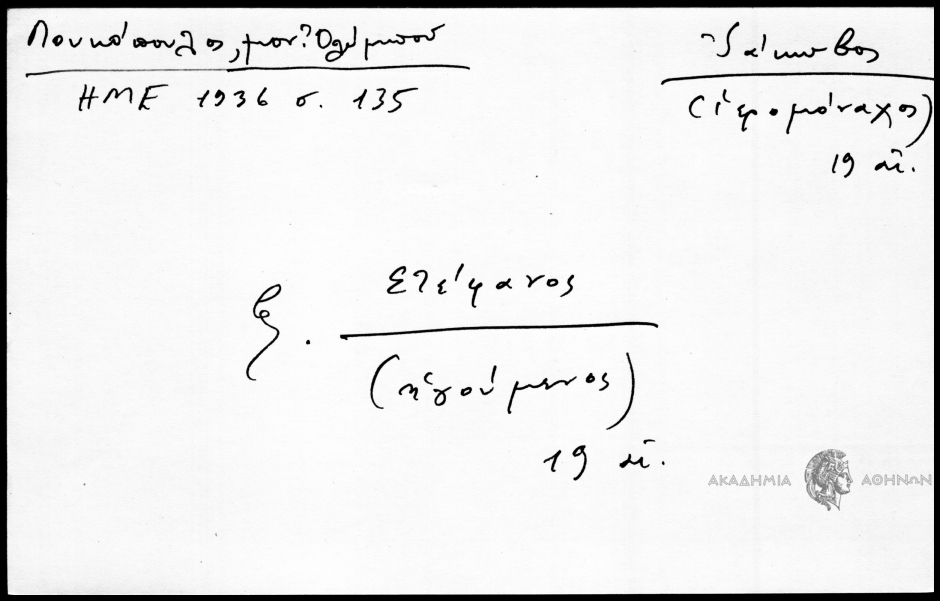 Λουκόπουλος, μον? Ολύμπου
ΗΜΕ 1936 σ. 135
Ἰάκωβος
(ἱερομόναχος)
19 αἰ.
Στέφανος
(ἡγούμενος)
19 αἰ.
ΑΚΑΔΗΜΙΑ ΑΘΗΝΩΝ